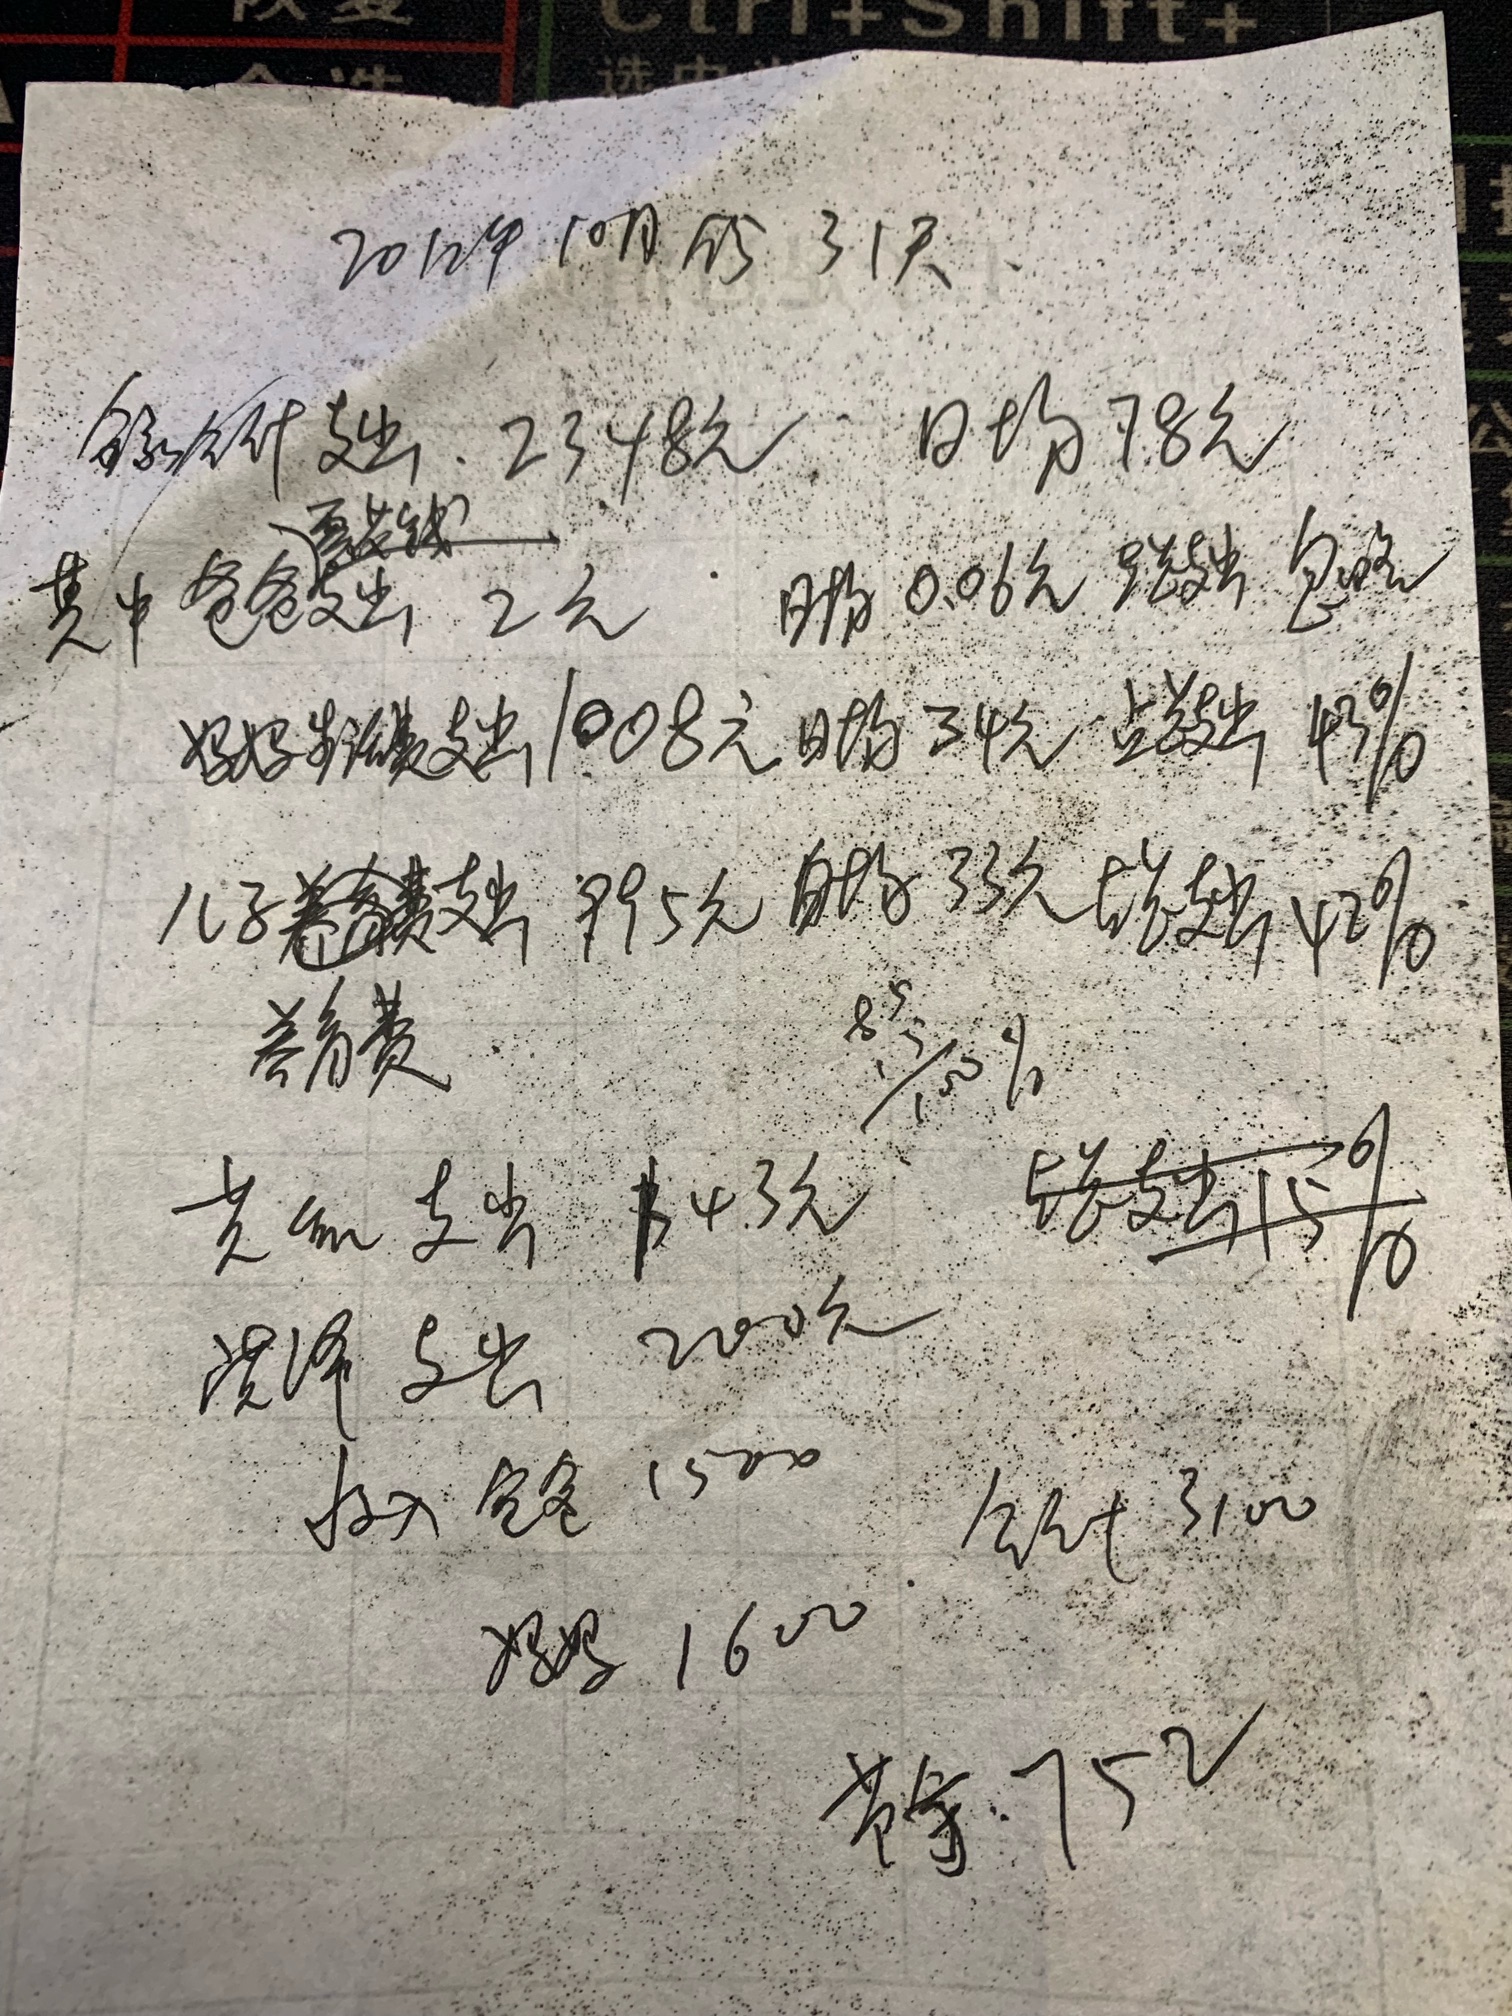 恢复
Ctrl+Shift+
全选
2012年10月份31天
全家合计支出.2348元 日均78元
零花钱
其中爸爸支出 2元 日均0.06元 占总支出 忽略
妈妈生活费支出1008元 日均34元 占总支出 43%
儿子养育费支出 995元 日均33元 占总支出 42%
养育费
支出 343元 占总支出15%
支出 200元
收入爸爸 1500 合计3100
妈妈 1600
节余.752